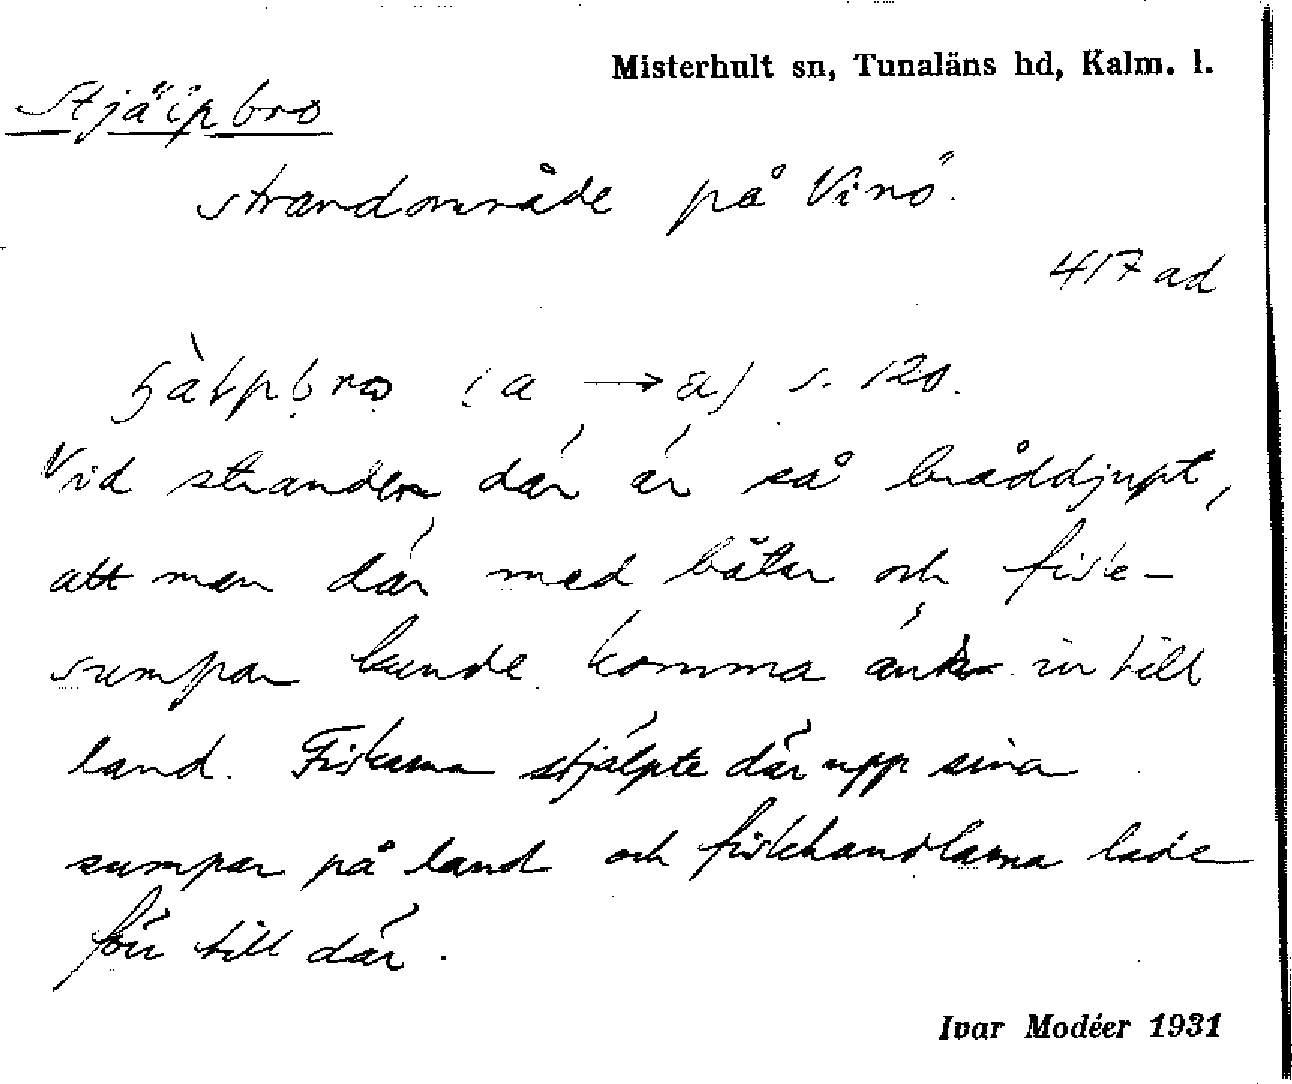 Misterhult sn, Tunaläns hd, Kalm. l.
Stjälpbro
strandområde på Vinö.
417 ad
(a → a) s. 120.
Vid stranden där är så bråddjupt,
att man där med båtar och fiske-
sumpar kunde komma ända in till
land. Fiskarna stjälpte där upp sina
sumpar på land och fiskhandlarna lade
för till där.
Ivar Modéer 1931